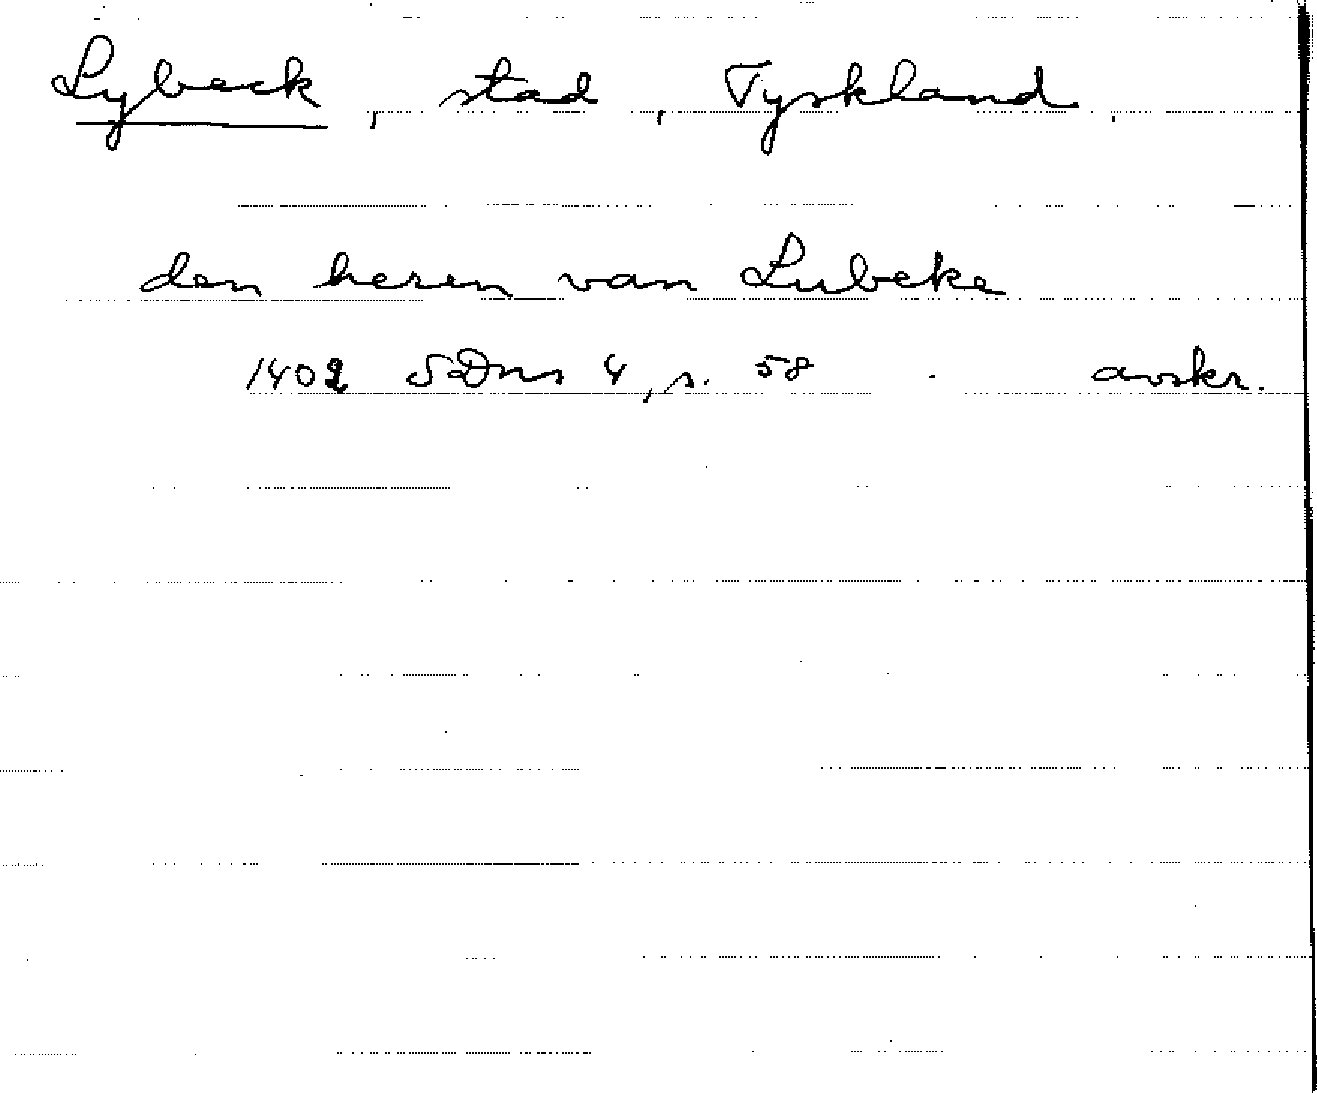 Lybeck, stad, Tyskland.
den heren van Lubeke
1402 SDns 4, s. 58. avskr.